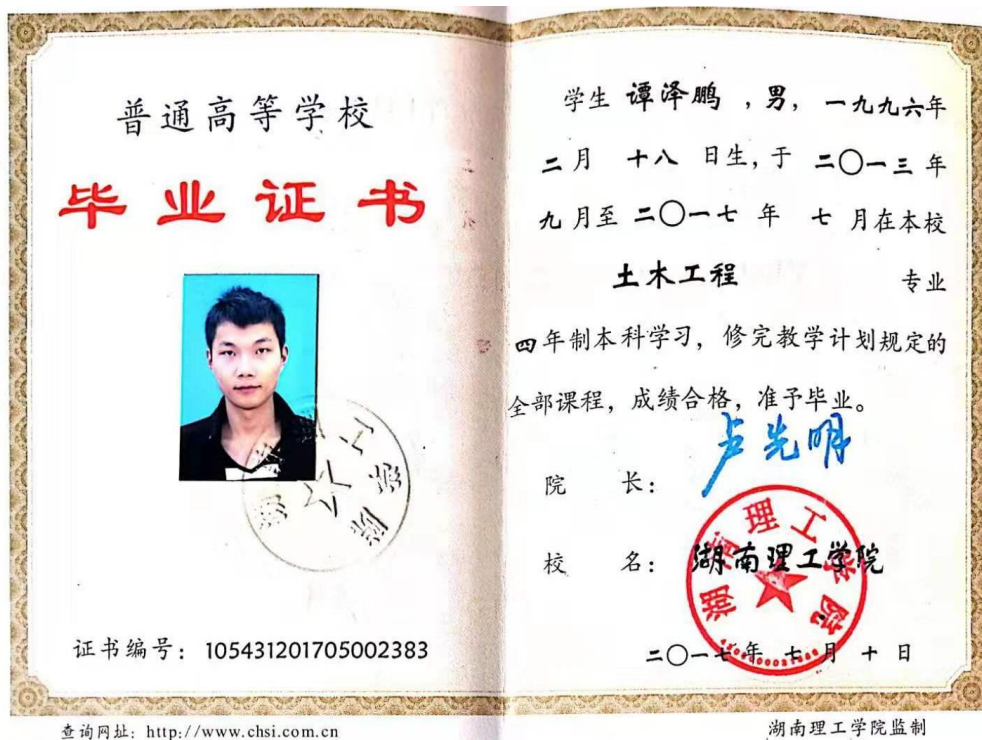 普通高等学校
毕业证书
证书编号：105431201705002383
查询网址：http://www.chsi.com.cn
学生 谭泽鹏 ，男，一九九六年
二月 十八 日生，于 二〇一三 年
九月至 二〇一七 年 七 月在本校
土木工程 专业
四年制本科学习，修完教学计划规定的
全部课程，成绩合格，准予毕业。
院 长：卢先明
校 名：湖南理工学院
湖南理工学院
二〇一七年 七月 十日
湖南理工学院监制